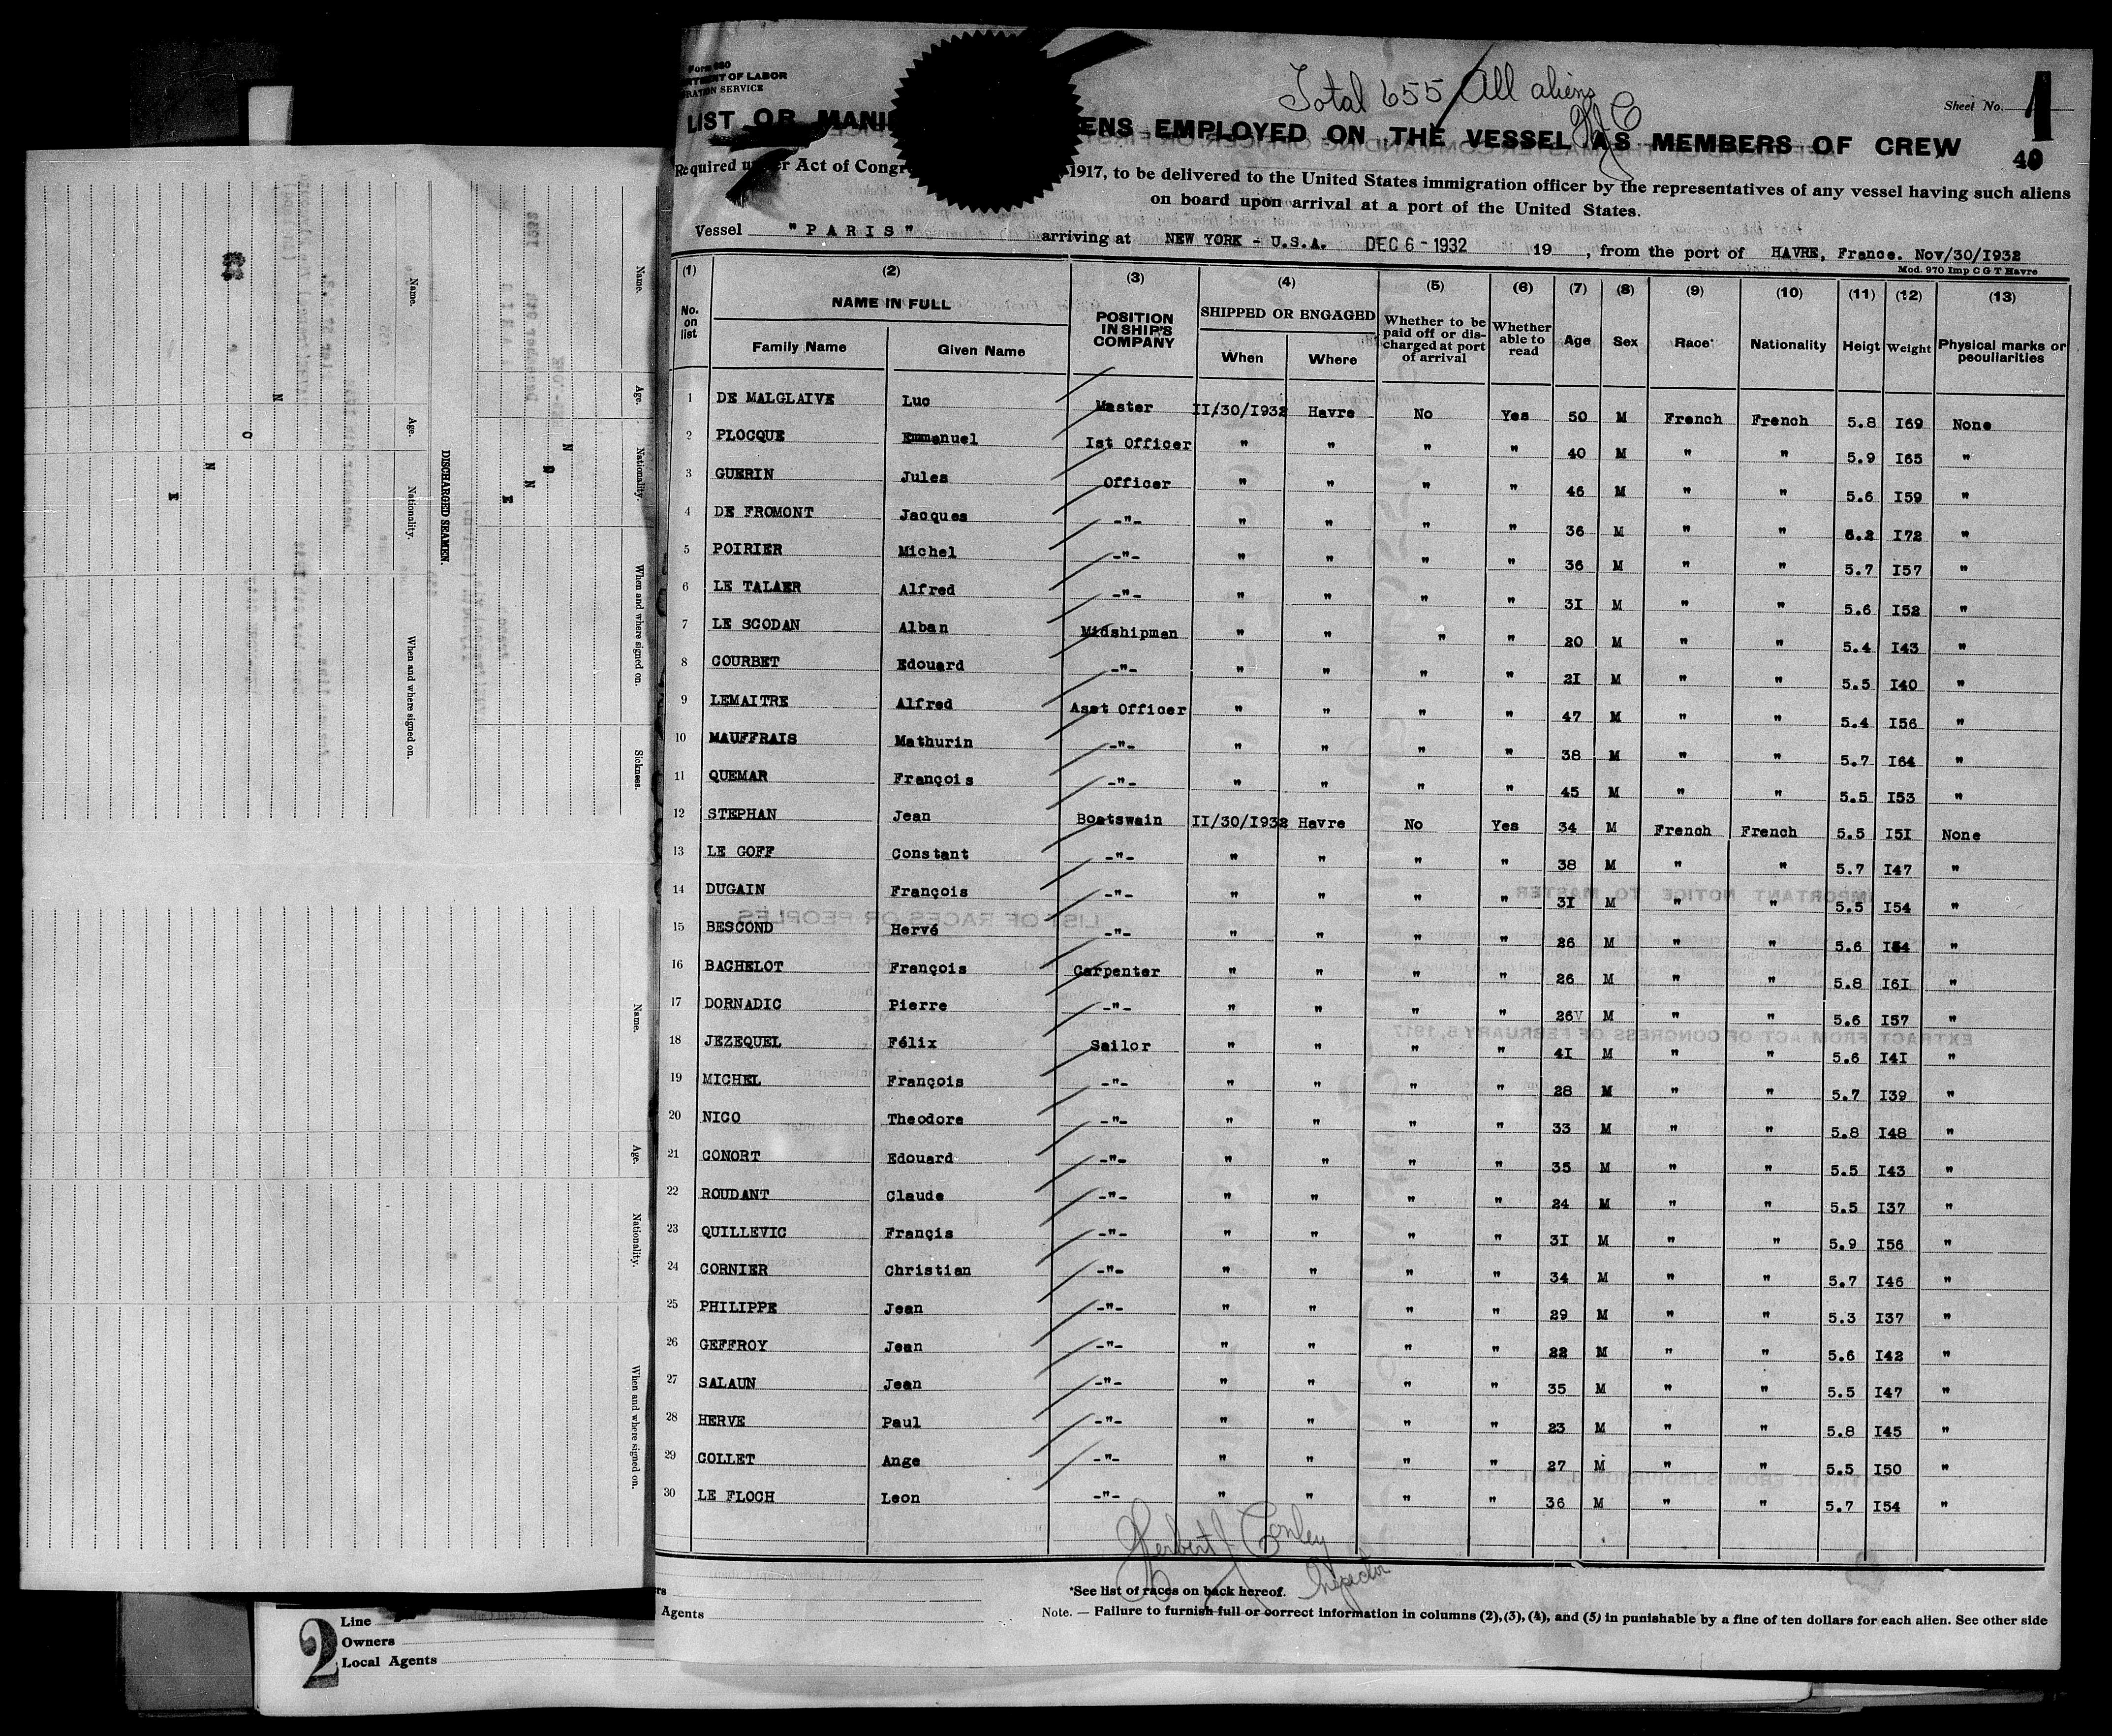 Form 680
DEPARTMENT OF LABOR
IMMIGRATION SERVICE
Total 655 All aliens
Sheet No. 1
LIST OR MANI ENS EMPLOYED ON THE VESSEL AS MEMBERS OF CREW
40
Required under Act of Congr 1917, to be delivered to the United States immigration officer by the representatives of any vessel having such aliens
on board upon arrival at a port of the United States.
Vessel "PARIS" arriving at NEW YORK - U.S.A. DEC 6 - 1932 19 , from the port of HAVRE, France. Nov/30/I932
Mod. 970 Imp C G T Havre
(1) (2) (3) (4) (5) (6) (7) (8) (9) (10) (11) (12) (13)
No. on list NAME IN FULL Family Name Given Name POSITION IN SHIP'S COMPANY SHIPPED OR ENGAGED When Where Whether to be paid off or discharged at port of arrival Whether able to read Age Sex Race* Nationality Heigt Weight Physical marks or peculiarities
1 DE MALGLAIVE Luc Master II/30/I932 Havre No Yes 50 M French French 5.8 I69 None
2 PLOCQUE Emmanuel Ist Officer " " " " 40 M " " 5.9 I65 "
3 GUERIN Jules Officer " " " " 46 M " " 5.6 I59 "
4 DE FROMONT Jacques -"- " " " " 36 M " " 6.2 I72 "
5 POIRIER Michel -"- " " " " 36 M " " 5.7 I57 "
6 LE TALAER Alfred -"- " " " " 3I M " " 5.6 I52 "
7 LE SCODAN Alban Midshipman " " " " 20 M " " 5.4 I43 "
8 COURBET Edouard -"- " " " " 2I M " " 5.5 I40 "
9 LEMAITRE Alfred Asst Officer " " " " 47 M " " 5.4 I56 "
10 MAUFFRAIS Mathurin -"- " " " " 38 M " " 5.7 I64 "
11 QUEMAR François -"- " " " " 45 M " " 5.5 I53 "
12 STEPHAN Jean Boatswain II/30/I932 Havre No Yes 34 M French French 5.5 I5I None
13 LE GOFF Constant -"- " " " " 38 M " " 5.7 I47 "
14 DUGAIN François -"- " " " " 3I M " " 5.5 I54 "
15 BESCOND Hervé -"- " " " " 26 M " " 5.6 I54 "
16 BACHELOT François Carpenter " " " " 26 M " " 5.8 I6I "
17 DORNADIC Pierre -"- " " " " 26V M " " 5.6 I57 "
18 JEZEQUEL Félix Sailor " " " " 4I M " " 5.6 I4I "
19 MICHEL François -"- " " " " 28 M " " 5.7 I39 "
20 NICO Theodore -"- " " " " 33 M " " 5.8 I48 "
21 CONORT Edouard -"- " " " " 35 M " " 5.5 I43 "
22 ROUDANT Claude -"- " " " " 24 M " " 5.5 I37 "
23 QUILLEVIC Françis -"- " " " " 3I M " " 5.9 I56 "
24 CORNIER Christian -"- " " " " 34 M " " 5.7 I46 "
25 PHILIPPE Jean -"- " " " " 29 M " " 5.3 I37 "
26 GEFFROY Jean -"- " " " " 22 M " " 5.6 I42 "
27 SALAUN Jean -"- " " " " 35 M " " 5.5 I47 "
28 HERVE Paul -"- " " " " 23 M " " 5.8 I45 "
29 COLLET Ange -"- " " " " 27 M " " 5.5 I50 "
30 LE FLOCH Leon -"- " " " " 36 M " " 5.7 I54 "
Herbert J. Conley
Inspector
*See list of races on back hereof.
Agents
Note. — Failure to furnish full or correct information in columns (2),(3),(4), and (5) in punishable by a fine of ten dollars for each alien. See other side
2
Line
Owners
Local Agents
Name. Age. Nationality. When and where signed on. Sickness.
DISCHARGED SEAMEN.
Name. Age. Nationality. When and where signed on.
Name. Age. Nationality. When and where signed on.